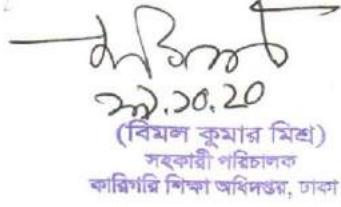 ২১.১০.২০
(বিমল কুমার মিশ্র)
সহকারী পরিচালক
কারিগরি শিক্ষা অধিদপ্তর, ঢাকা